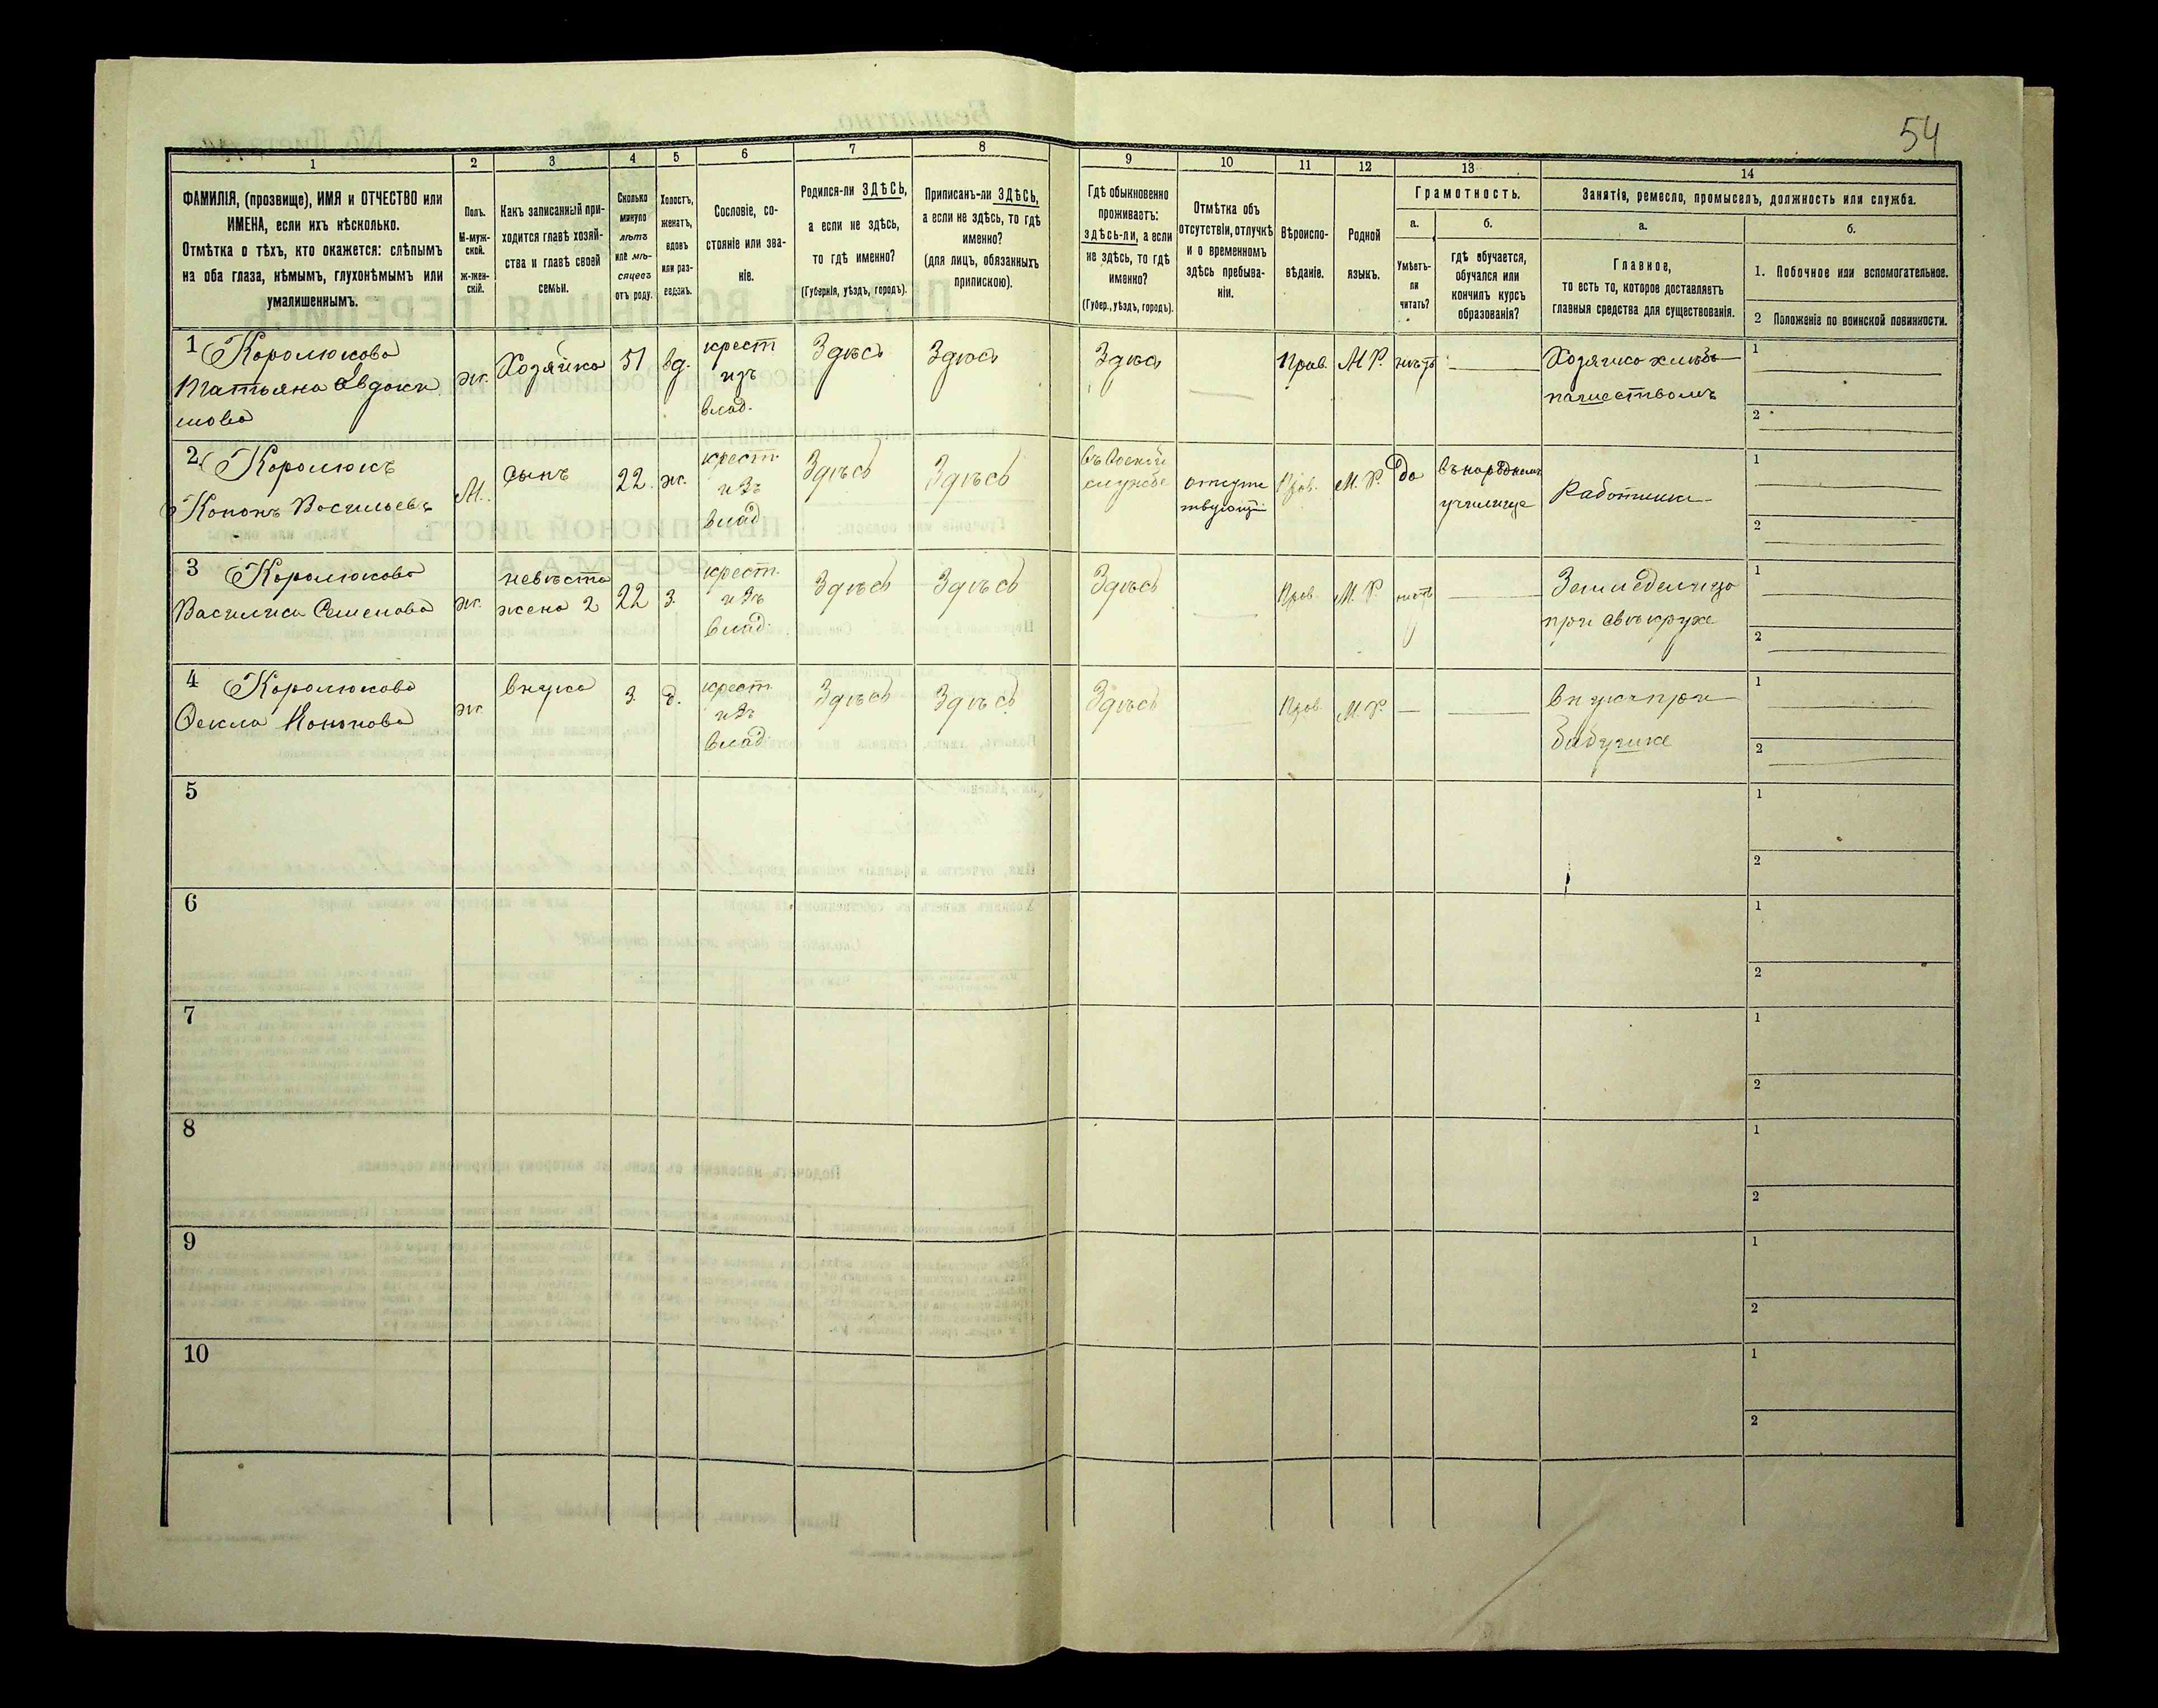 54
1 2 3 4 5 6 7 8 9 10 11 12 13 14
ФАМИЛІЯ, (прозвище), ИМЯ и ОТЧЕСТВО или
ИМЕНА, если ихъ нѣсколько.
Отмѣтка о тѣхъ, кто окажется: слѣпымъ
на оба глаза, нѣмымъ, глухонѣмымъ или
умалишеннымъ.
Полъ.
М-муж-
ской.
ж-жен-
скій.
Какъ записанный при-
ходится главѣ хозяй-
ства и главѣ своей
семьи.
Сколько
минуло
лѣтъ
или мѣ-
сяцевъ
отъ роду.
Холостъ,
женатъ,
вдовъ
или раз-
веденъ.
Сословіе, со-
стояніе или зва-
ніе.
Родился-ли ЗДѢСЬ,
а если не здѣсь,
то гдѣ именно?
(Губернія, уѣздъ, городъ).
Приписанъ-ли ЗДѢСЬ,
а если не здѣсь, то гдѣ
именно?
(для лицъ, обязанныхъ
припискою).
Гдѣ обыкновенно
проживаетъ:
здѣсь-ли, а если
не здѣсь, то гдѣ
именно?
(Губер., уѣздъ, городъ).
Отмѣтка объ
отсутствіи, отлучкѣ
и о временномъ
здѣсь пребыва-
ніи.
Вѣроиспо-
вѣданіе.
Родной
языкъ.
Грамотность.
а.
Умѣетъ-
ли
читать?
б.
гдѣ обучается,
обучался или
кончилъ курсъ
образованія?
Занятія, ремесло, промыселъ, должность или служба.
а.
Главное,
то есть то, которое доставляетъ
главныя средства для существованія.
б.
1. Побочное или вспомогательное.
2 Положеніе по воинской повинности.
1 Королюкова
Татьяна Евдоки
мова
ж.
Хозяйка
51
вд.
крест
изъ
влад.
Здѣсь
Здѣсь
Здѣсь
Прав.
М Р.
нѣтъ
Хозяйка хлѣбо
пашествомъ
1
2
2 Королюкъ
Кононъ Васильевъ
М.
сынъ
22
ж.
крест.
изъ
влад
Здѣсь
Здѣсь
въ военой
службе
отсутс
твующій
Прав.
М. Р.
да
въ народном
училище
Работникъ
1
2
3 Королюкова
Василиса Семенова
ж.
невѣста
жена 2
22
з.
крест.
изъ
влад.
Здѣсь
Здѣсь
Здѣсь
Прав.
М. Р.
нѣтъ
Земледелица
при свѣкрухе
1
2
4 Королюкова
Фекла Кононова
ж.
внука
3
д.
крест.
изъ
влад.
Здѣсь
Здѣсь
Здѣсь
Прав.
М. Р.
внука при
бабушке
1
2
5
1
2
6
1
2
7
1
2
8
1
2
9
1
2
10
1
2